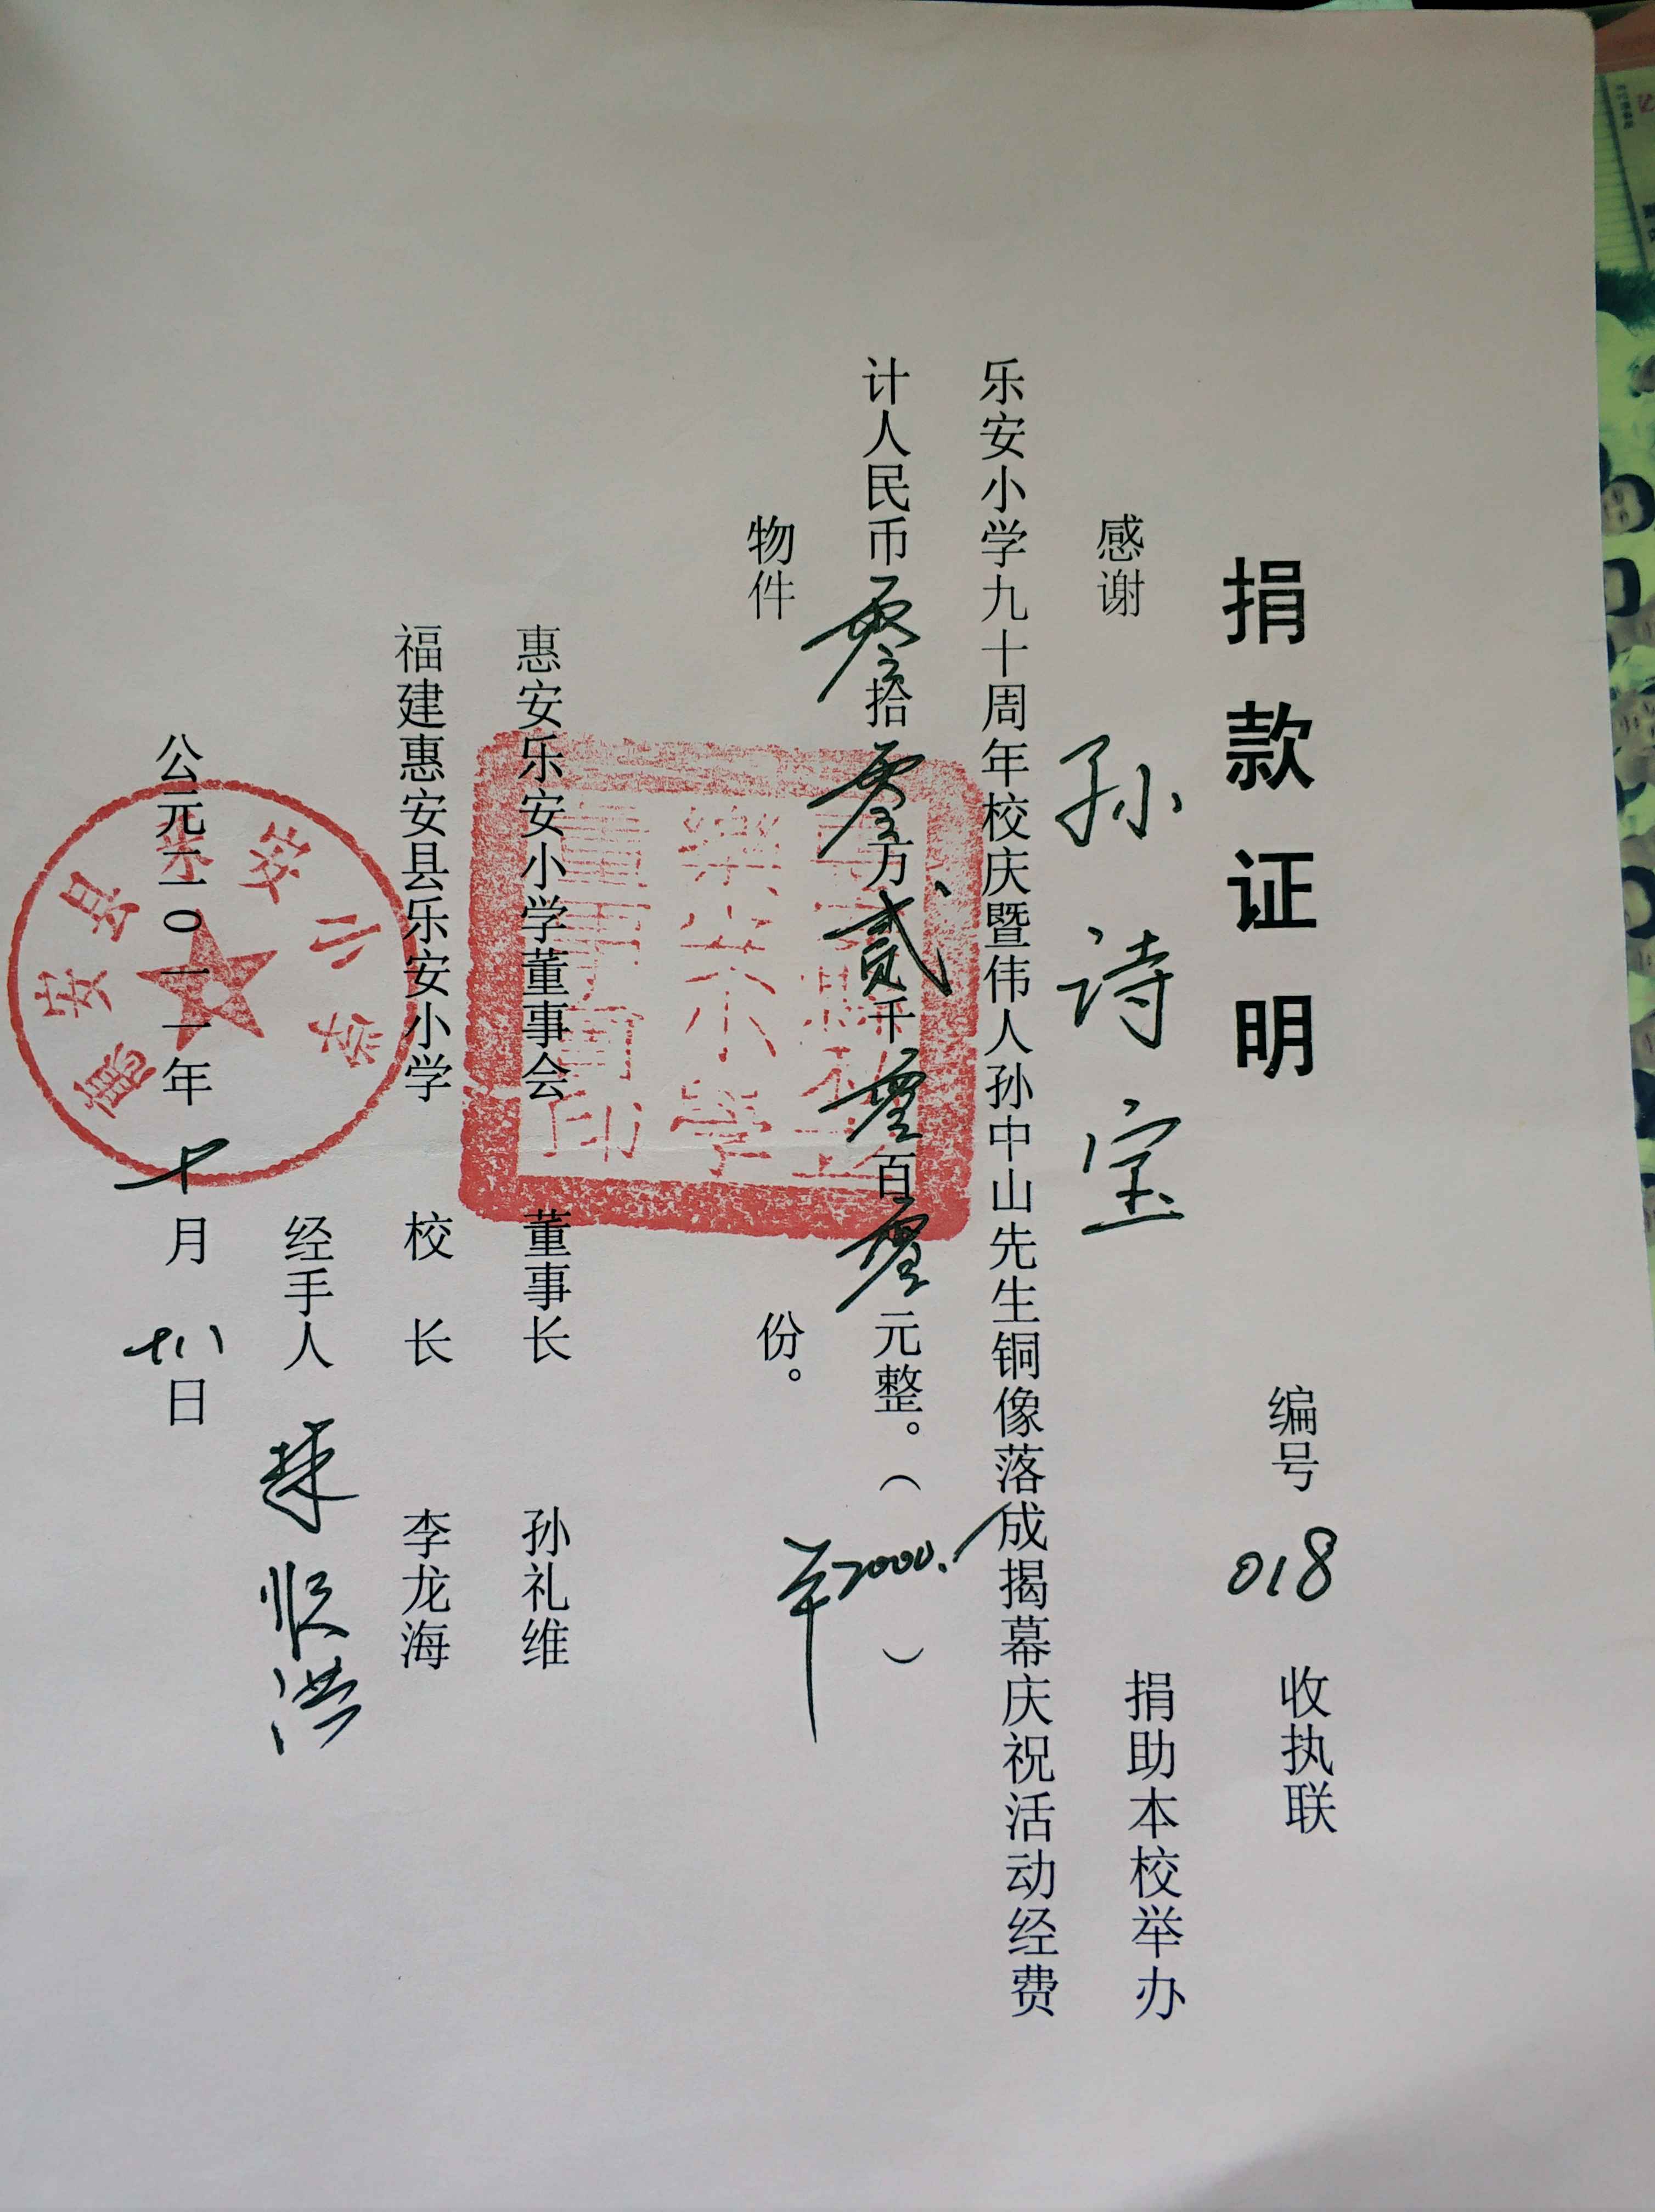 捐款证明
编号 018 收执联
感谢 孙诗宝 捐助本校举办
乐安小学九十周年校庆暨伟人孙中山先生铜像落成揭幕庆祝活动经费
计人民币零拾零万贰千零百零元整。(¥2000.)
物件 份。
惠安乐安小学董事会 董事长 孙礼维
福建惠安县乐安小学 校长 李龙海
经手人 洪
公元二0一一年 十月 十八日
惠安县乐安小学